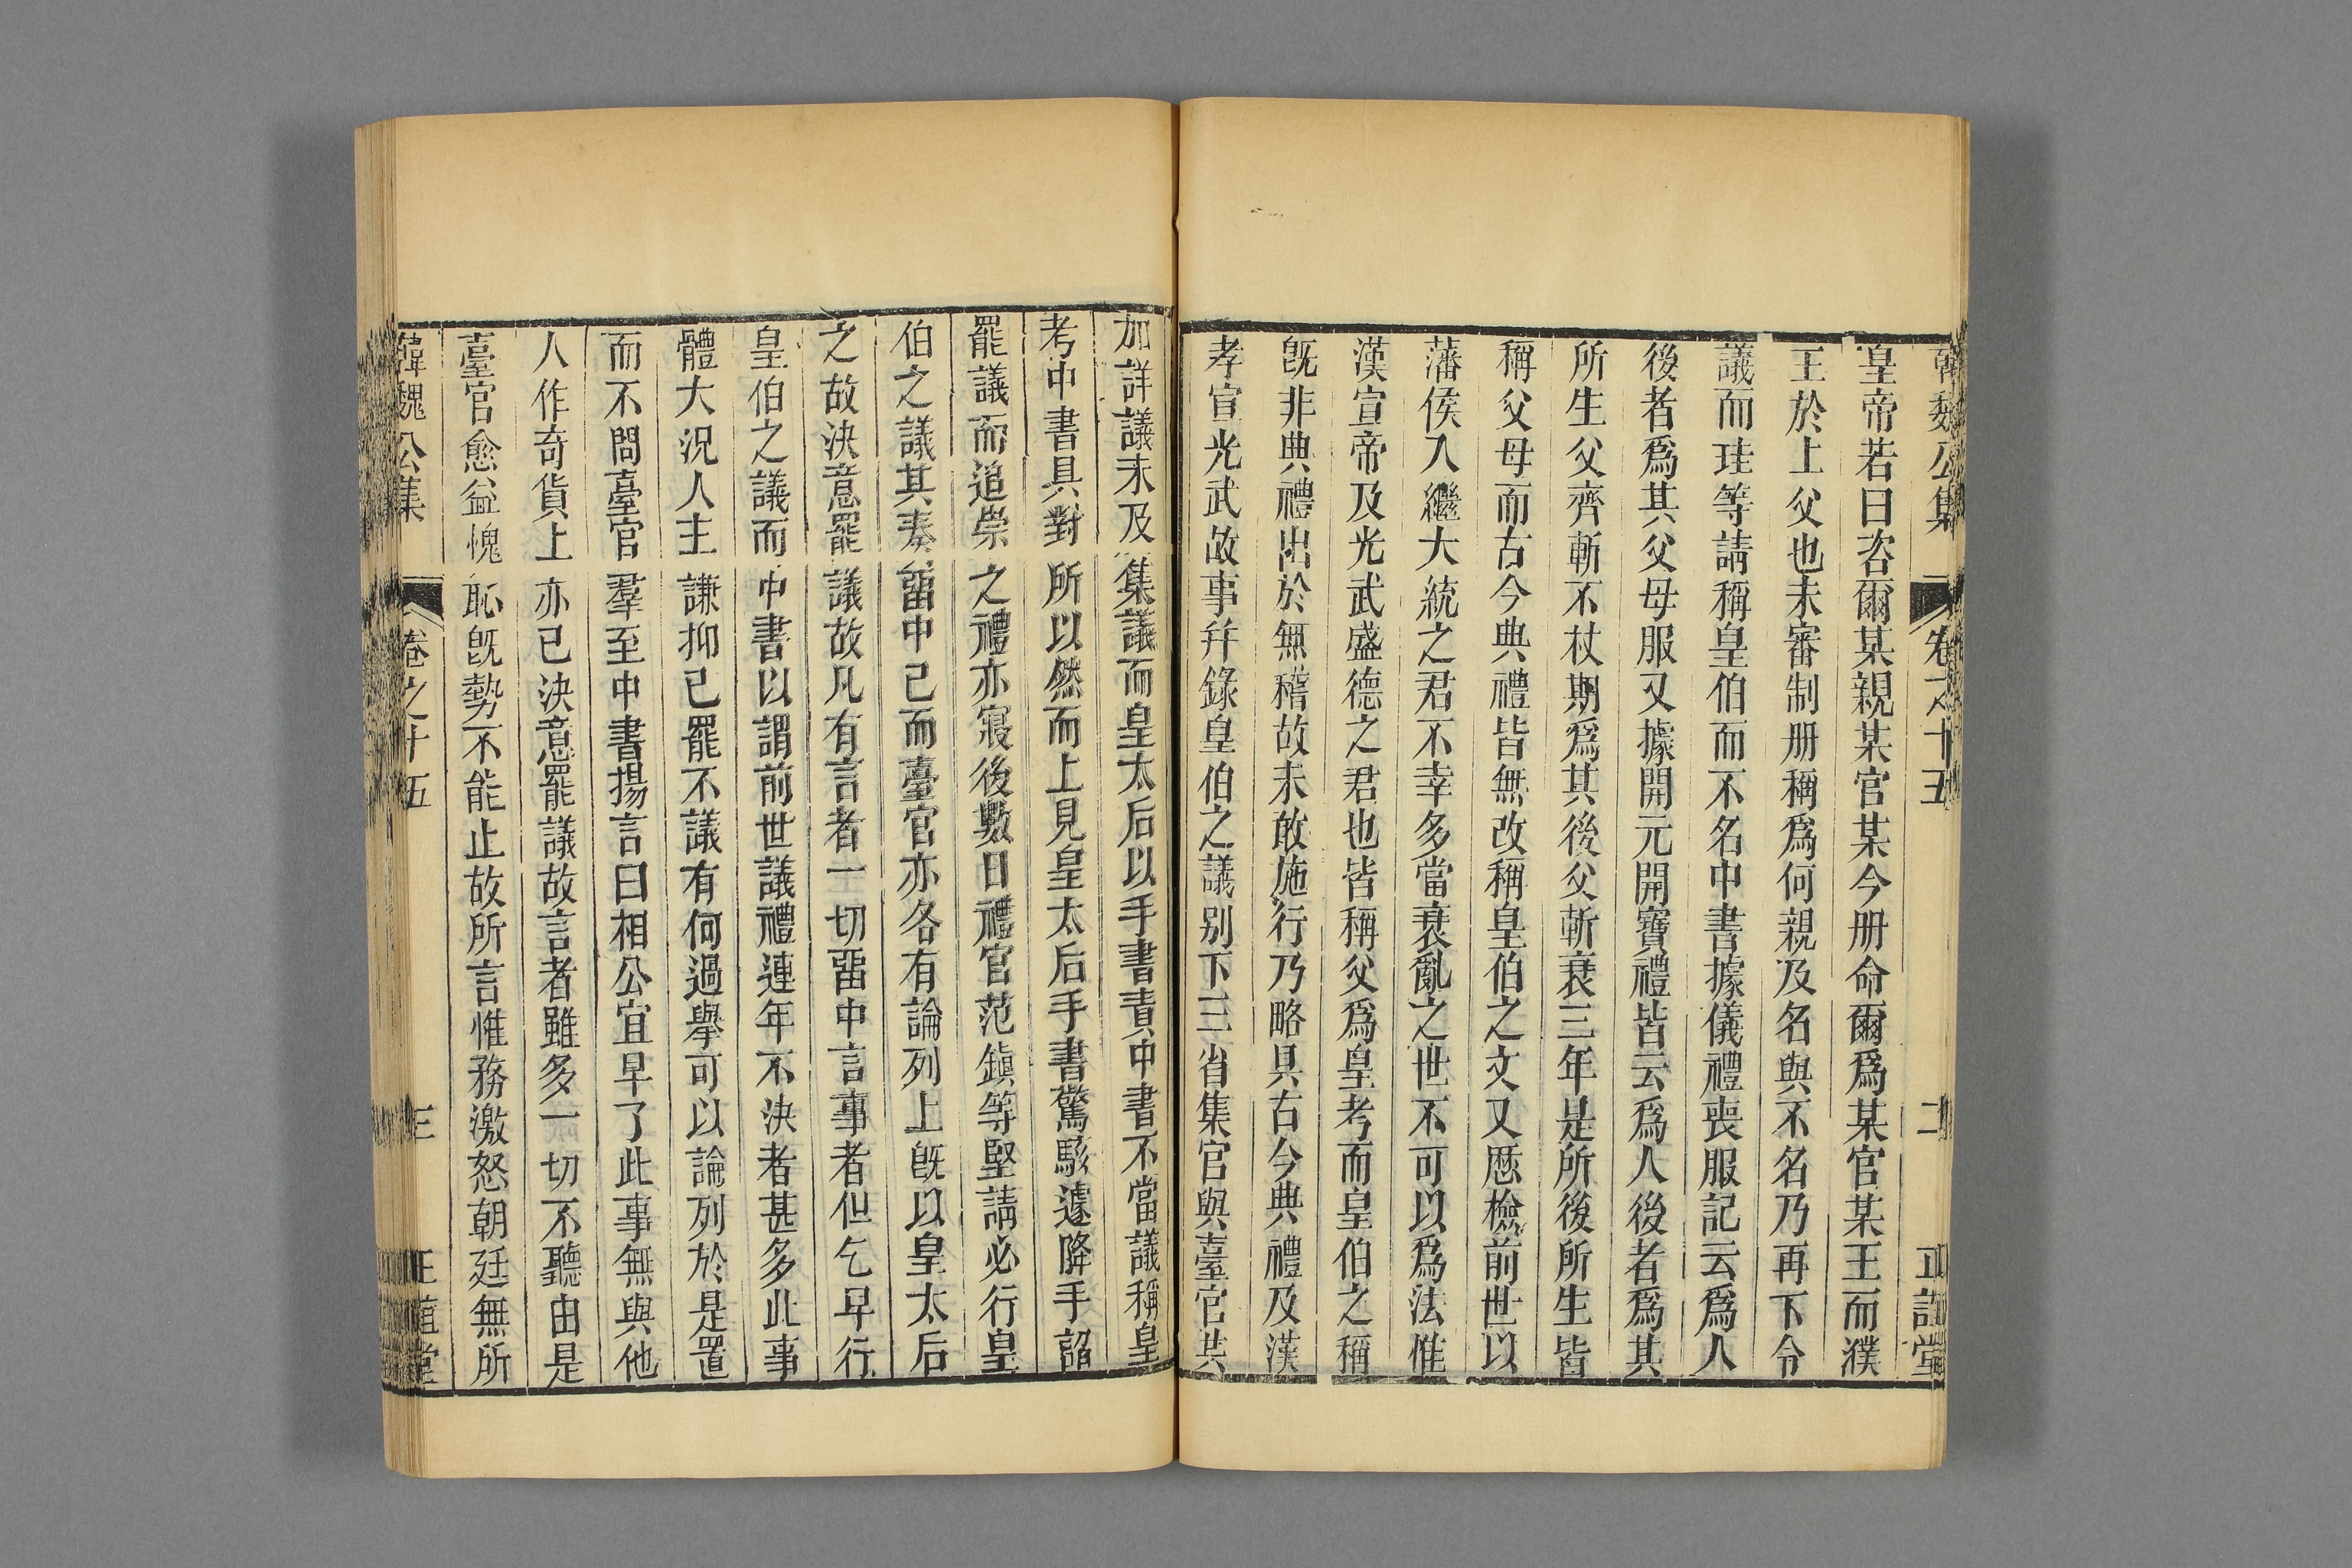 韓魏公集 卷之十五 二 正誼堂
皇帝若曰咨爾某親某官某今册命爾爲某官某王而濮
王於上父也未審制册稱爲何親及名與不名乃再下令
議而珪等請稱皇伯而不名中書據儀禮喪服記云爲人
後者爲其父母服又據開元開寶禮皆云爲人後者爲其
所生父齊斬不杖期爲其後父斬衰三年是所後所生皆
稱父母而古今典禮皆無改稱皇伯之文又歷檢前世以
藩侯入繼大統之君不幸多當衰亂之世不可以爲法惟
漢宣帝及光武盛德之君也皆稱父爲皇考而皇伯之稱
旣非典禮出於無稽故未敢施行乃略具古今典禮及漢
孝宣光武故事并錄皇伯之議別下三省集官與臺官共
加詳議未及集議而皇太后以手書責中書不當議稱皇
考中書具對所以然而上見皇太后手書驚駭遽降手詔
罷議而追崇之禮亦寢後數日禮官范鎭等堅請必行皇
伯之議其奏畱中已而臺官亦各有論列上旣以皇太后
之故決意罷議故凡有言者一切畱中言事者但乞早行
皇伯之議而中書以謂前世議禮連年不決者甚多此事
體大況人主謙抑已罷不議有何過舉可以論列於是置
而不問臺官羣至中書揚言曰相公宜早了此事無與他
人作奇貨上亦已決意罷議故言者雖多一切不聽由是
臺官愈益愧恥旣勢不能止故所言惟務激怒朝廷無所
韓魏公集 卷之十五 三 正誼堂